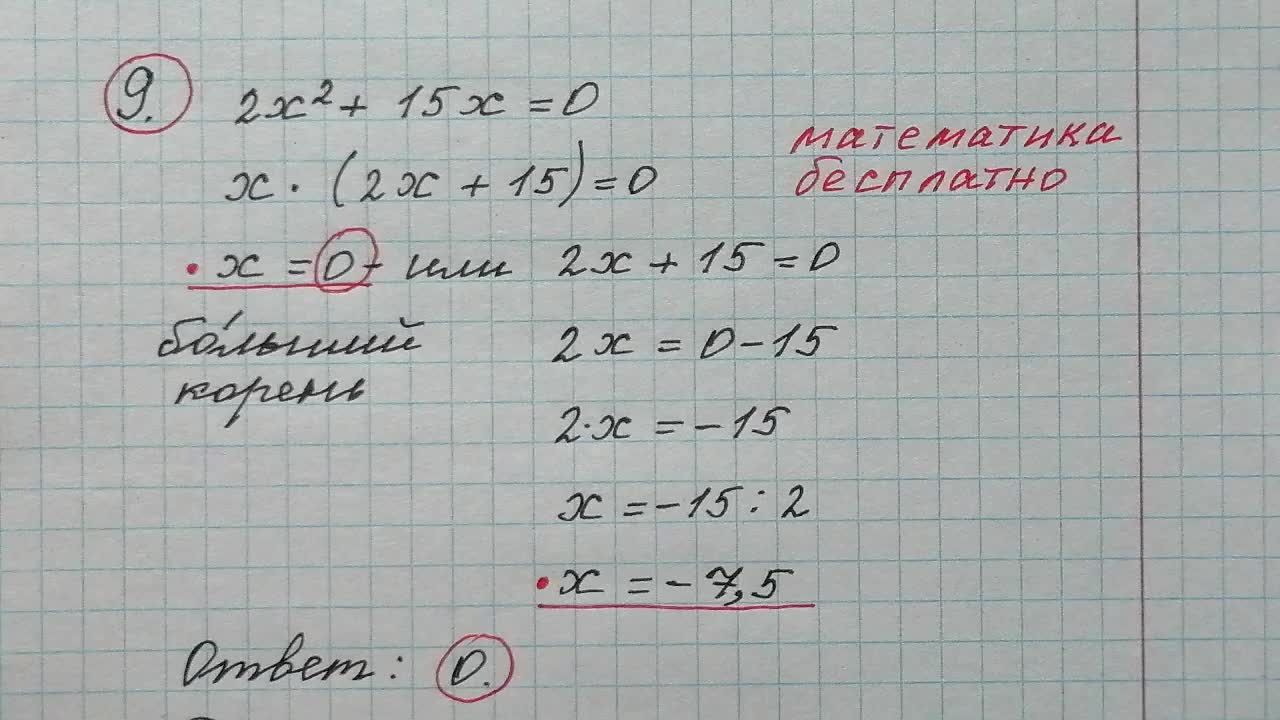 9. 2x² + 15x = 0
математика
бесплатно
x · (2x + 15) = 0
· x = 0 - или 2x + 15 = 0
бо́льший
корень
2x = 0 - 15
2·x = -15
x = -15 : 2
· x = -7,5
Ответ: 0.